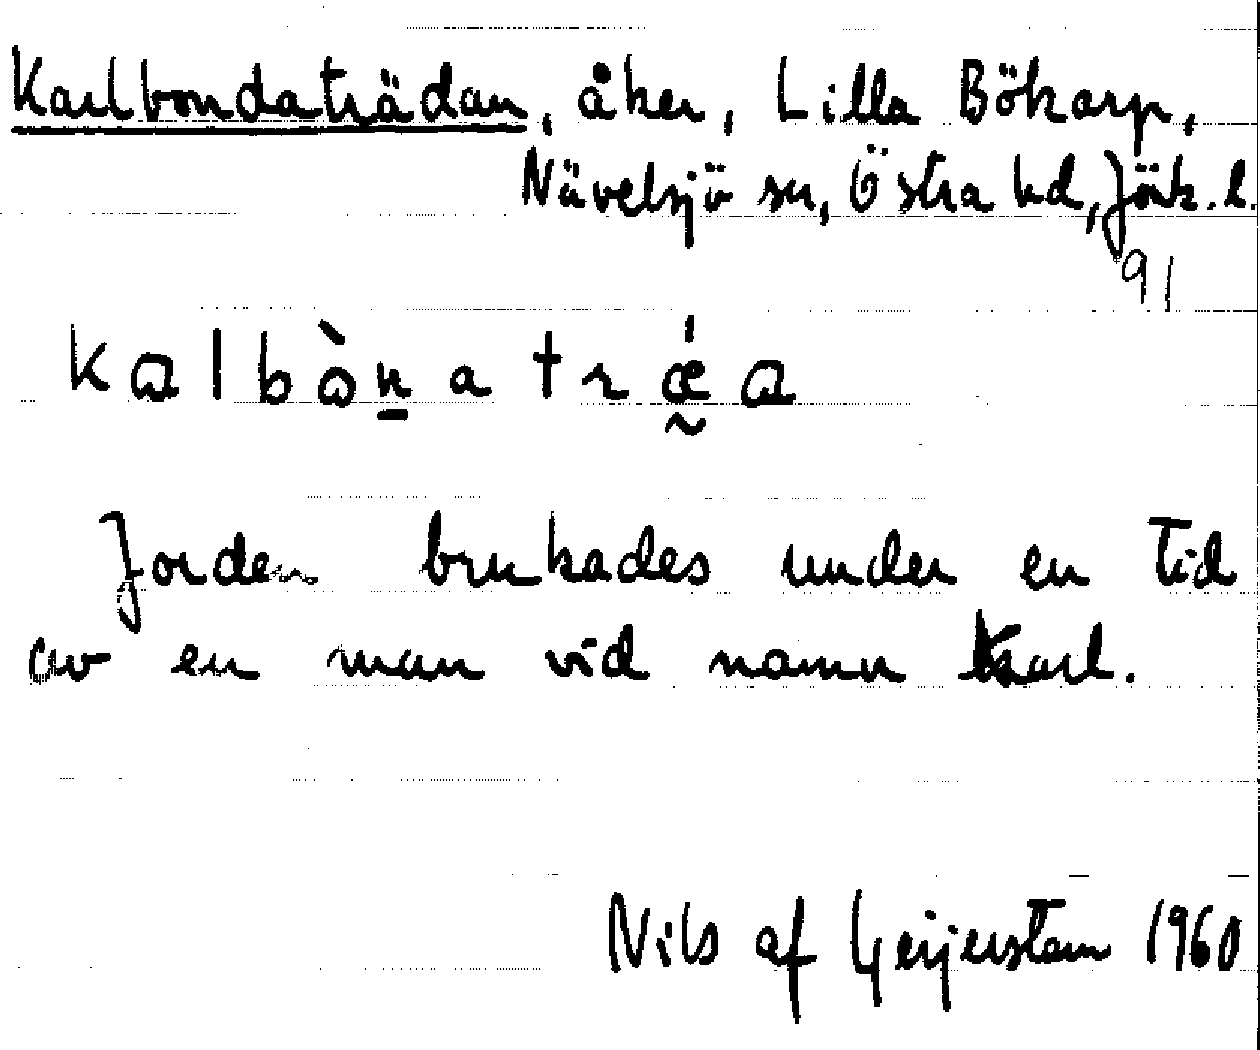 Karlbondaträdan, åker, Lilla Bökarp,
Nävelsjö sn, Östra hd, Jönk. l.
91
kalbònatrǽa
Jorden brukades under en tid
av en man vid namn Karl.
Nils af Geijerstam 1960